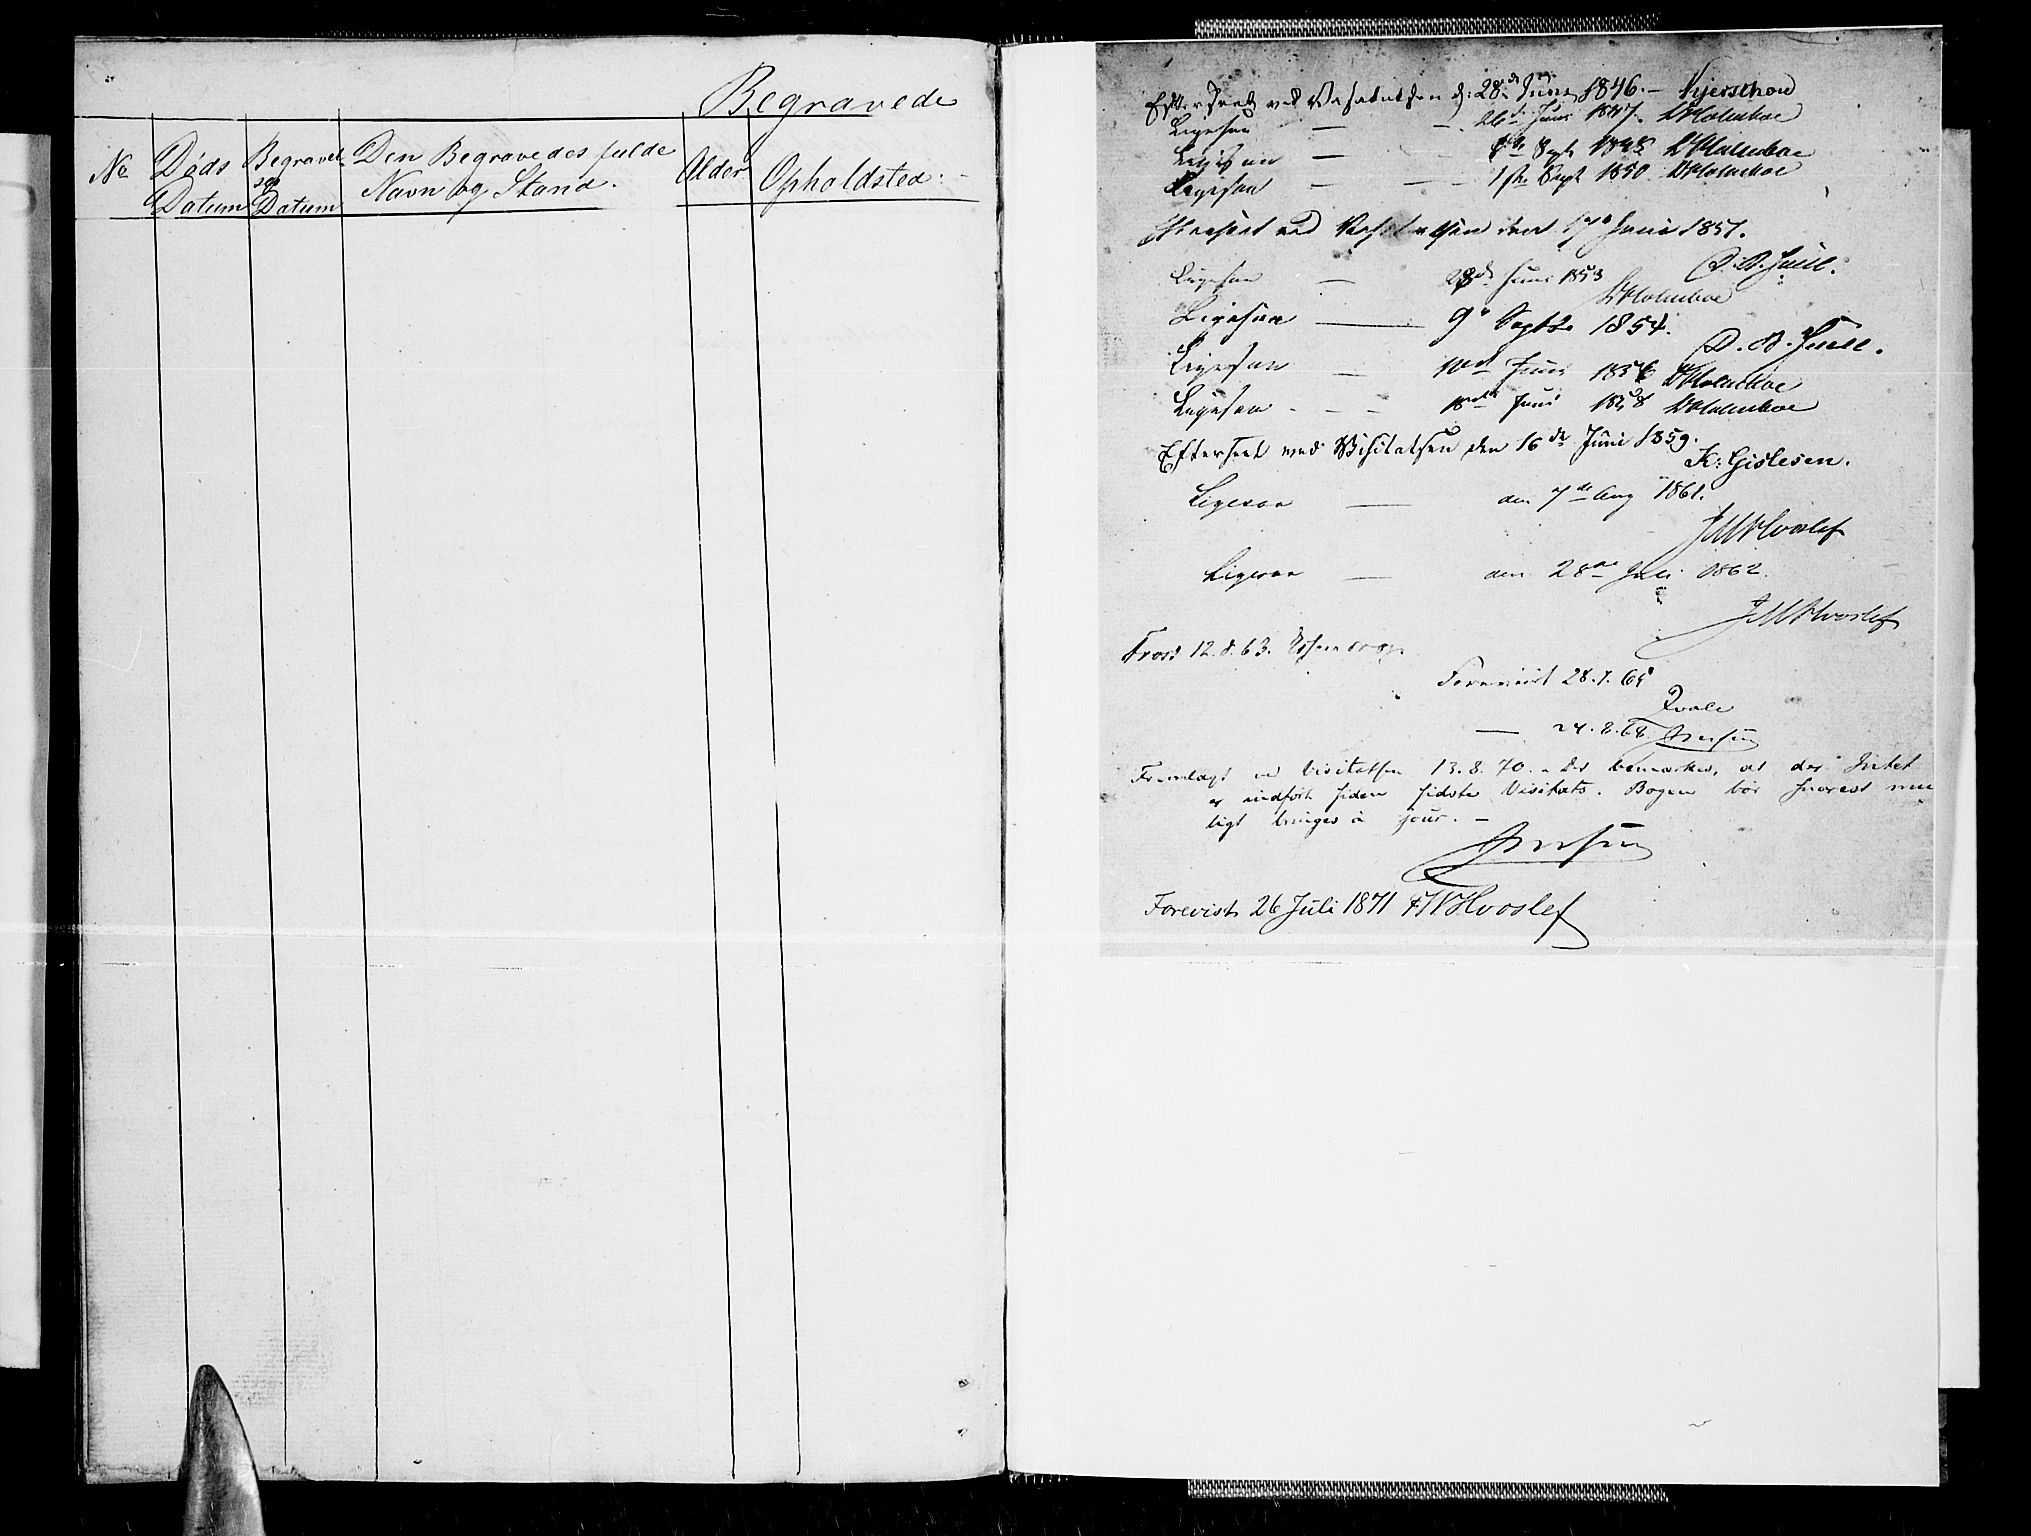 Begravede
No
Døds Datum
Begravelses Datum
Den Begravedes fulde
Navn og Stand.
Alder
Opholdsted.
Efterseet ved Visitatsen d: 28de Juni 1846. – Kjerschow
Ligesaa — 26de Juni 1847. Holmboe
Ligesaa — Sept 1848 Holmboe
Ligesaa — 1ste Sept 1850 Holmboe
Efterseet ved Visitatsen den 17de Juni 1851.
D. B. Juell.
Ligesaa — 28de Juni 1853
Holmboe
Ligesaa — 9de Septbr 1854.
D. B. Juell.
Ligesaa — 10de Juni 1856 Holmboe
Ligesaa - - - Juni 1858 Holmboe
Efterseet ved Visitatsen den 16de Juni 1859.
K: Gislesen.
Ligesaa — den 7de Aug 1861.
JMHvoslef
Ligesaa — den 28de Juli 1862.
JMHvoslef
12.8.63.
Forevist 28.7.65
Qvale
— 24.8.68. Jensen
Fremlagt ved Visitatsen 13.8.70. – Det bemærkes, at der Intet
er indført siden sidste Visitats. Bogen bør snarest mu
ligt bringes à jour. –
Jensen
Forevist 26 Juli 1871 FWHvoslef